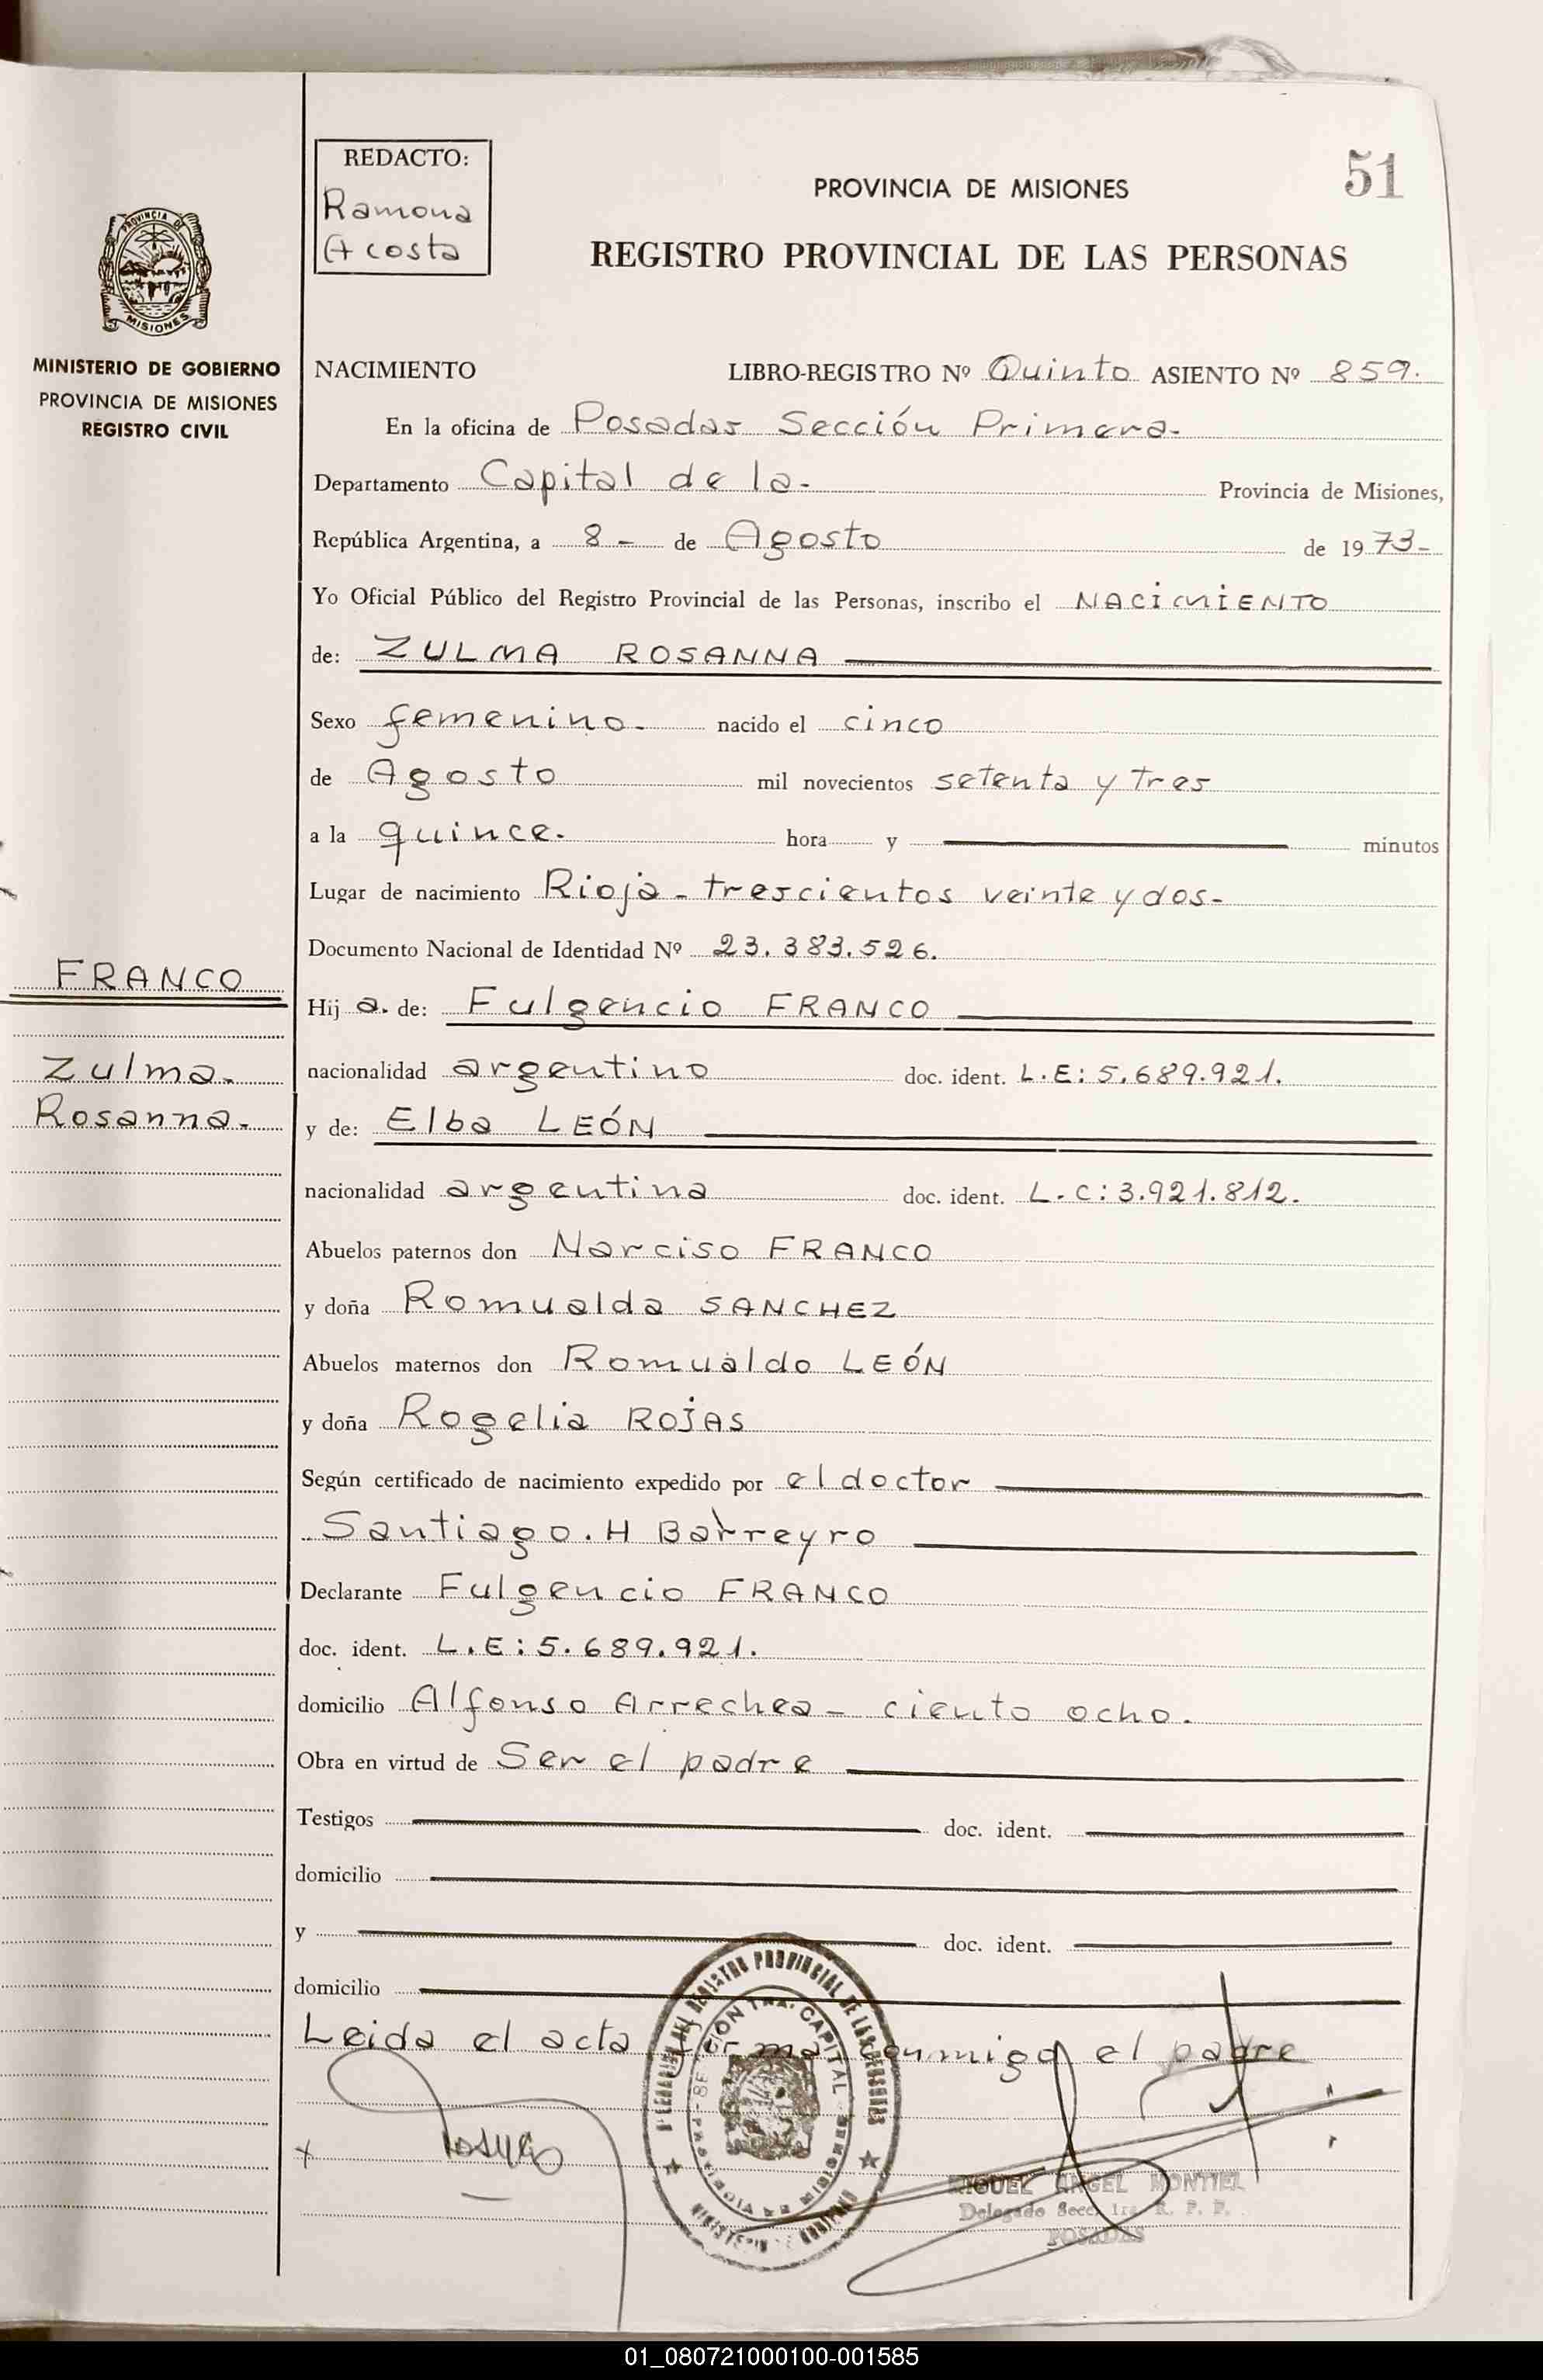 51
REDACTO:
Ramona
Acosta
PROVINCIA DE MISIONES
REGISTRO PROVINCIAL DE LAS PERSONAS
PROVINCIA DE
MISIONES
MINISTERIO DE GOBIERNO
PROVINCIA DE MISIONES
REGISTRO CIVIL
NACIMIENTO LIBRO-REGISTRO Nº Quinto ASIENTO Nº 859.
En la oficina de Posadas Sección Primera.
Departamento Capital de la- Provincia de Misiones,
República Argentina, a 8 - de Agosto de 1973-
Yo Oficial Público del Registro Provincial de las Personas, inscribo el NACIMIENTO
de: ZULMA ROSANNA
Sexo femenino. nacido el cinco
de Agosto mil novecientos setenta y tres
a la quince. hora y minutos
Lugar de nacimiento Rioja - trescientos veinte y dos-
Documento Nacional de Identidad Nº 23.383.526.
FRANCO
Zulma.
Rosanna.
Hija. de: Fulgencio FRANCO
nacionalidad argentino doc. ident. L.E: 5.689.921.
y de: Elba LEÓN
nacionalidad argentina doc. ident. L.C: 3.921.812.
Abuelos paternos don Narciso FRANCO
y doña Romualda SANCHEZ
Abuelos maternos don Romualdo LEÓN
y doña Rogelia ROJAS
Según certificado de nacimiento expedido por el doctor
Santiago. H Barreyro
Declarante Fulgencio FRANCO
doc. ident. L.E: 5.689.921.
domicilio Alfonso Arrechea - ciento ocho.
Obra en virtud de Ser el padre
Testigos doc. ident.
domicilio
y doc. ident.
domicilio
Leida el acta firma conmigo el padre
REGISTRO PROVINCIAL DE LAS PERSONAS
CAPITAL
MIGUEL ANGEL MONTIEL
Delegado Secc. 1ra. R. P. P.
POSADAS
01_080721000100-001585